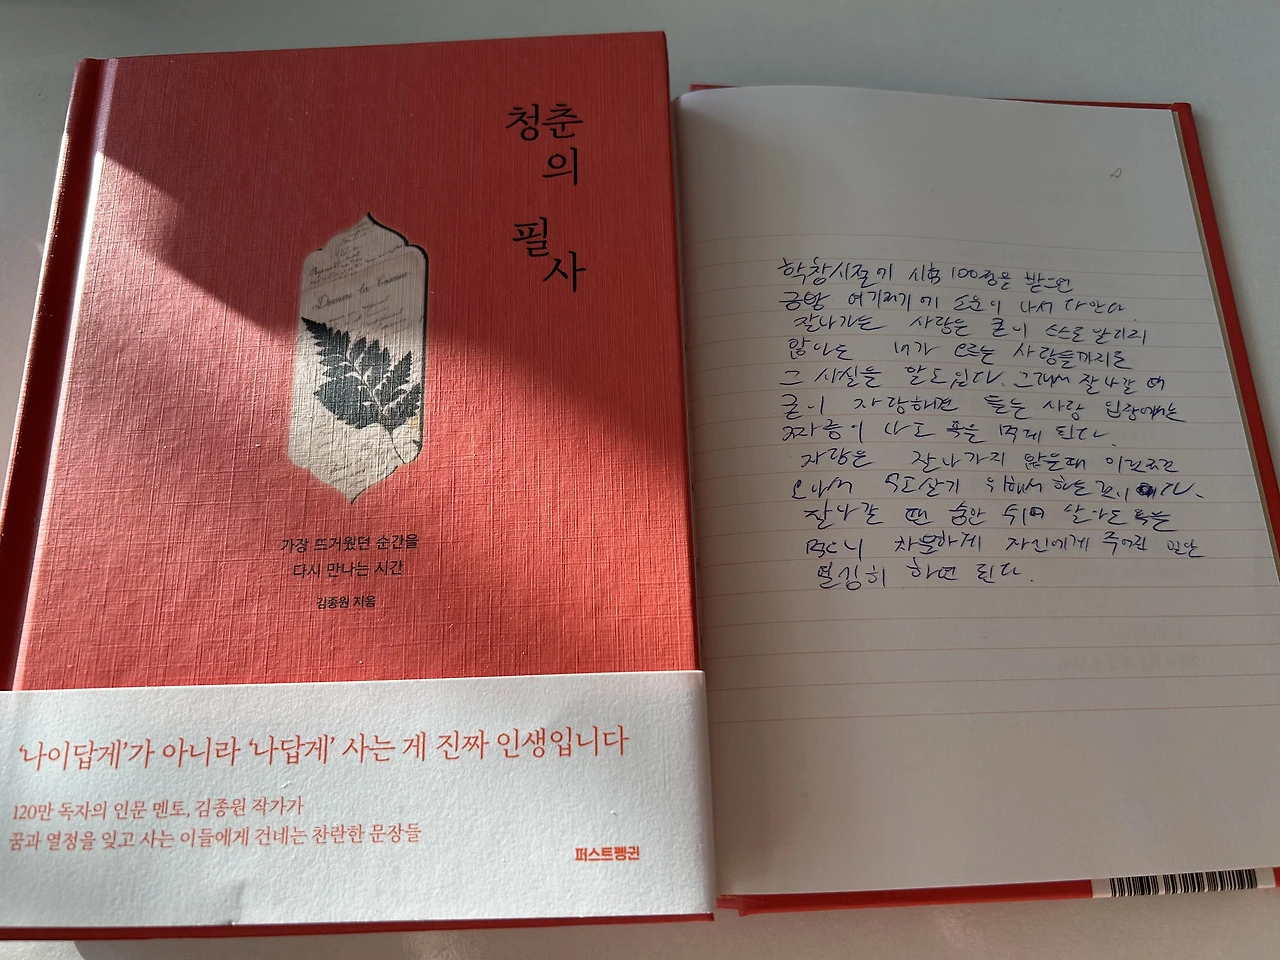 청춘
의
필
사
Dernière la
가장 뜨거웠던 순간을
다시 만나는 시간
김종원 지음
‘나이답게’가 아니라 ‘나답게’ 사는 게 진짜 인생입니다
120만 독자의 인문 멘토, 김종원 작가가
꿈과 열정을 잊고 사는 이들에게 건네는 찬란한 문장들
퍼스트펭귄
학창시절에 시험 100점을 받으면
금방 여기저기에 소문이 나서 다 안다.
잘나가는 사람은 굳이 스스로 알리지
않아도 내가 모르는 사람들까지도
그 사실을 알고 있다. 그래서 잘나갈 때
굳이 자랑하면 듣는 사람 입장에는
짜증이 나고 욕을 먹게 된다.
자랑은 잘나가지 않을때
위해서 하는
잘나갈 땐 숨만 쉬어
차분하게 자신에게 주어진 일만
열심히 하면 된다.